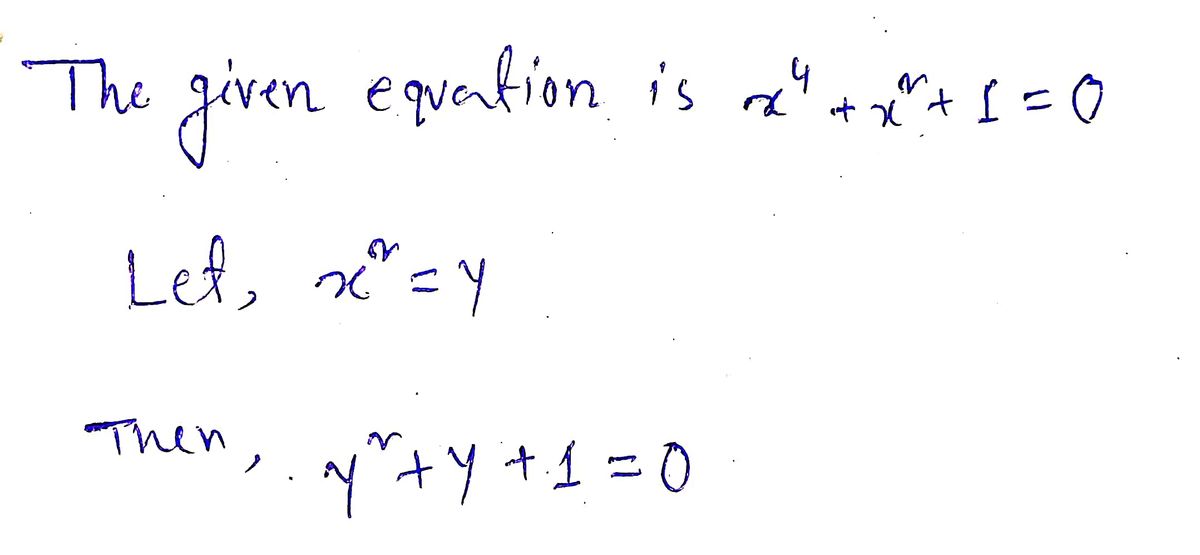 The given equation is x⁴ + x² + 1 = 0
Let, x² = y
Then, y² + y + 1 = 0